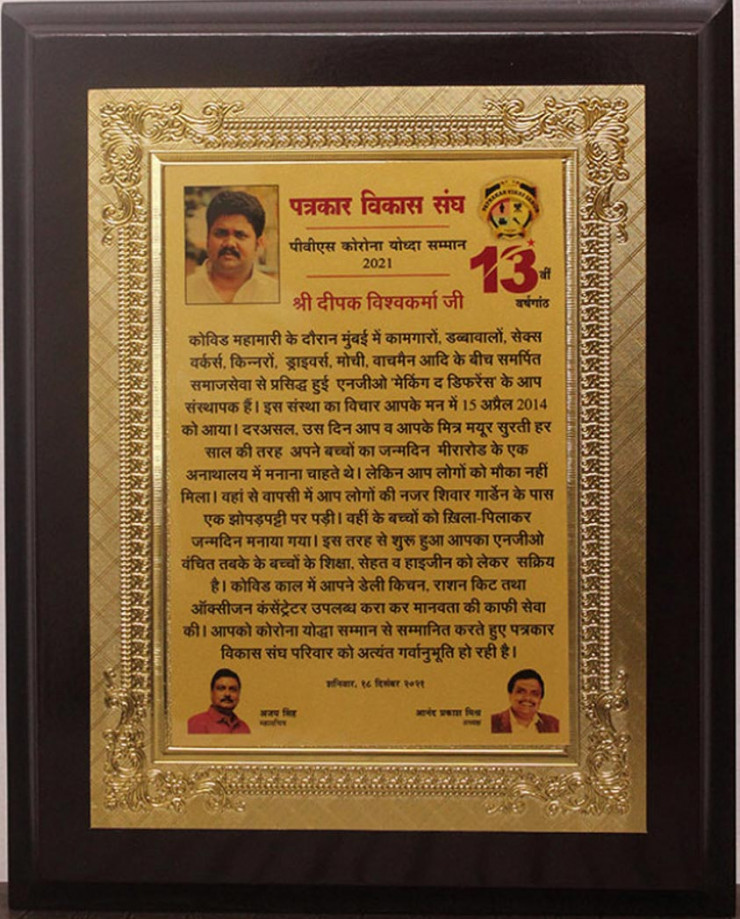 पत्रकार विकास संघ
पीवीएस कोरोना योध्दा सम्मान
2021
13वीं
वर्षगांठ
श्री दीपक विश्वकर्मा जी
कोविड महामारी के दौरान मुंबई में कामगारों, डब्बावालों, सेक्स
वर्कर्स, किन्नरों, ड्राइवर्स, मोची, वाचमैन आदि के बीच समर्पित
समाजसेवा से प्रसिद्ध हुई एनजीओ 'मेकिंग द डिफरेंस' के आप
संस्थापक हैं। इस संस्था का विचार आपके मन में 15 अप्रैल 2014
को आया। दरअसल, उस दिन आप व आपके मित्र मयूर सुरती हर
साल की तरह अपने बच्चों का जन्मदिन मीरारोड के एक
अनाथालय में मनाना चाहते थे। लेकिन आप लोगों को मौका नहीं
मिला। वहां से वापसी में आप लोगों की नजर शिवार गार्डेन के पास
एक झोपड़पट्टी पर पड़ी। वहीं के बच्चों को ख़िला-पिलाकर
जन्मदिन मनाया गया। इस तरह से शुरू हुआ आपका एनजीओ
वंचित तबके के बच्चों के शिक्षा, सेहत व हाइजीन को लेकर सक्रिय
है। कोविड काल में आपने डेली किचन, राशन किट तथा
ऑक्सीजन कंसेंट्रेटर उपलब्ध करा कर मानवता की काफी सेवा
की। आपको कोरोना योद्धा सम्मान से सम्मानित करते हुए पत्रकार
विकास संघ परिवार को अत्यंत गर्वानुभूति हो रही है।
शनिवार, १८ दिसंबर २०२१
अजय सिंह
महासचिव
आनंद प्रकाश मिश्र
अध्यक्ष